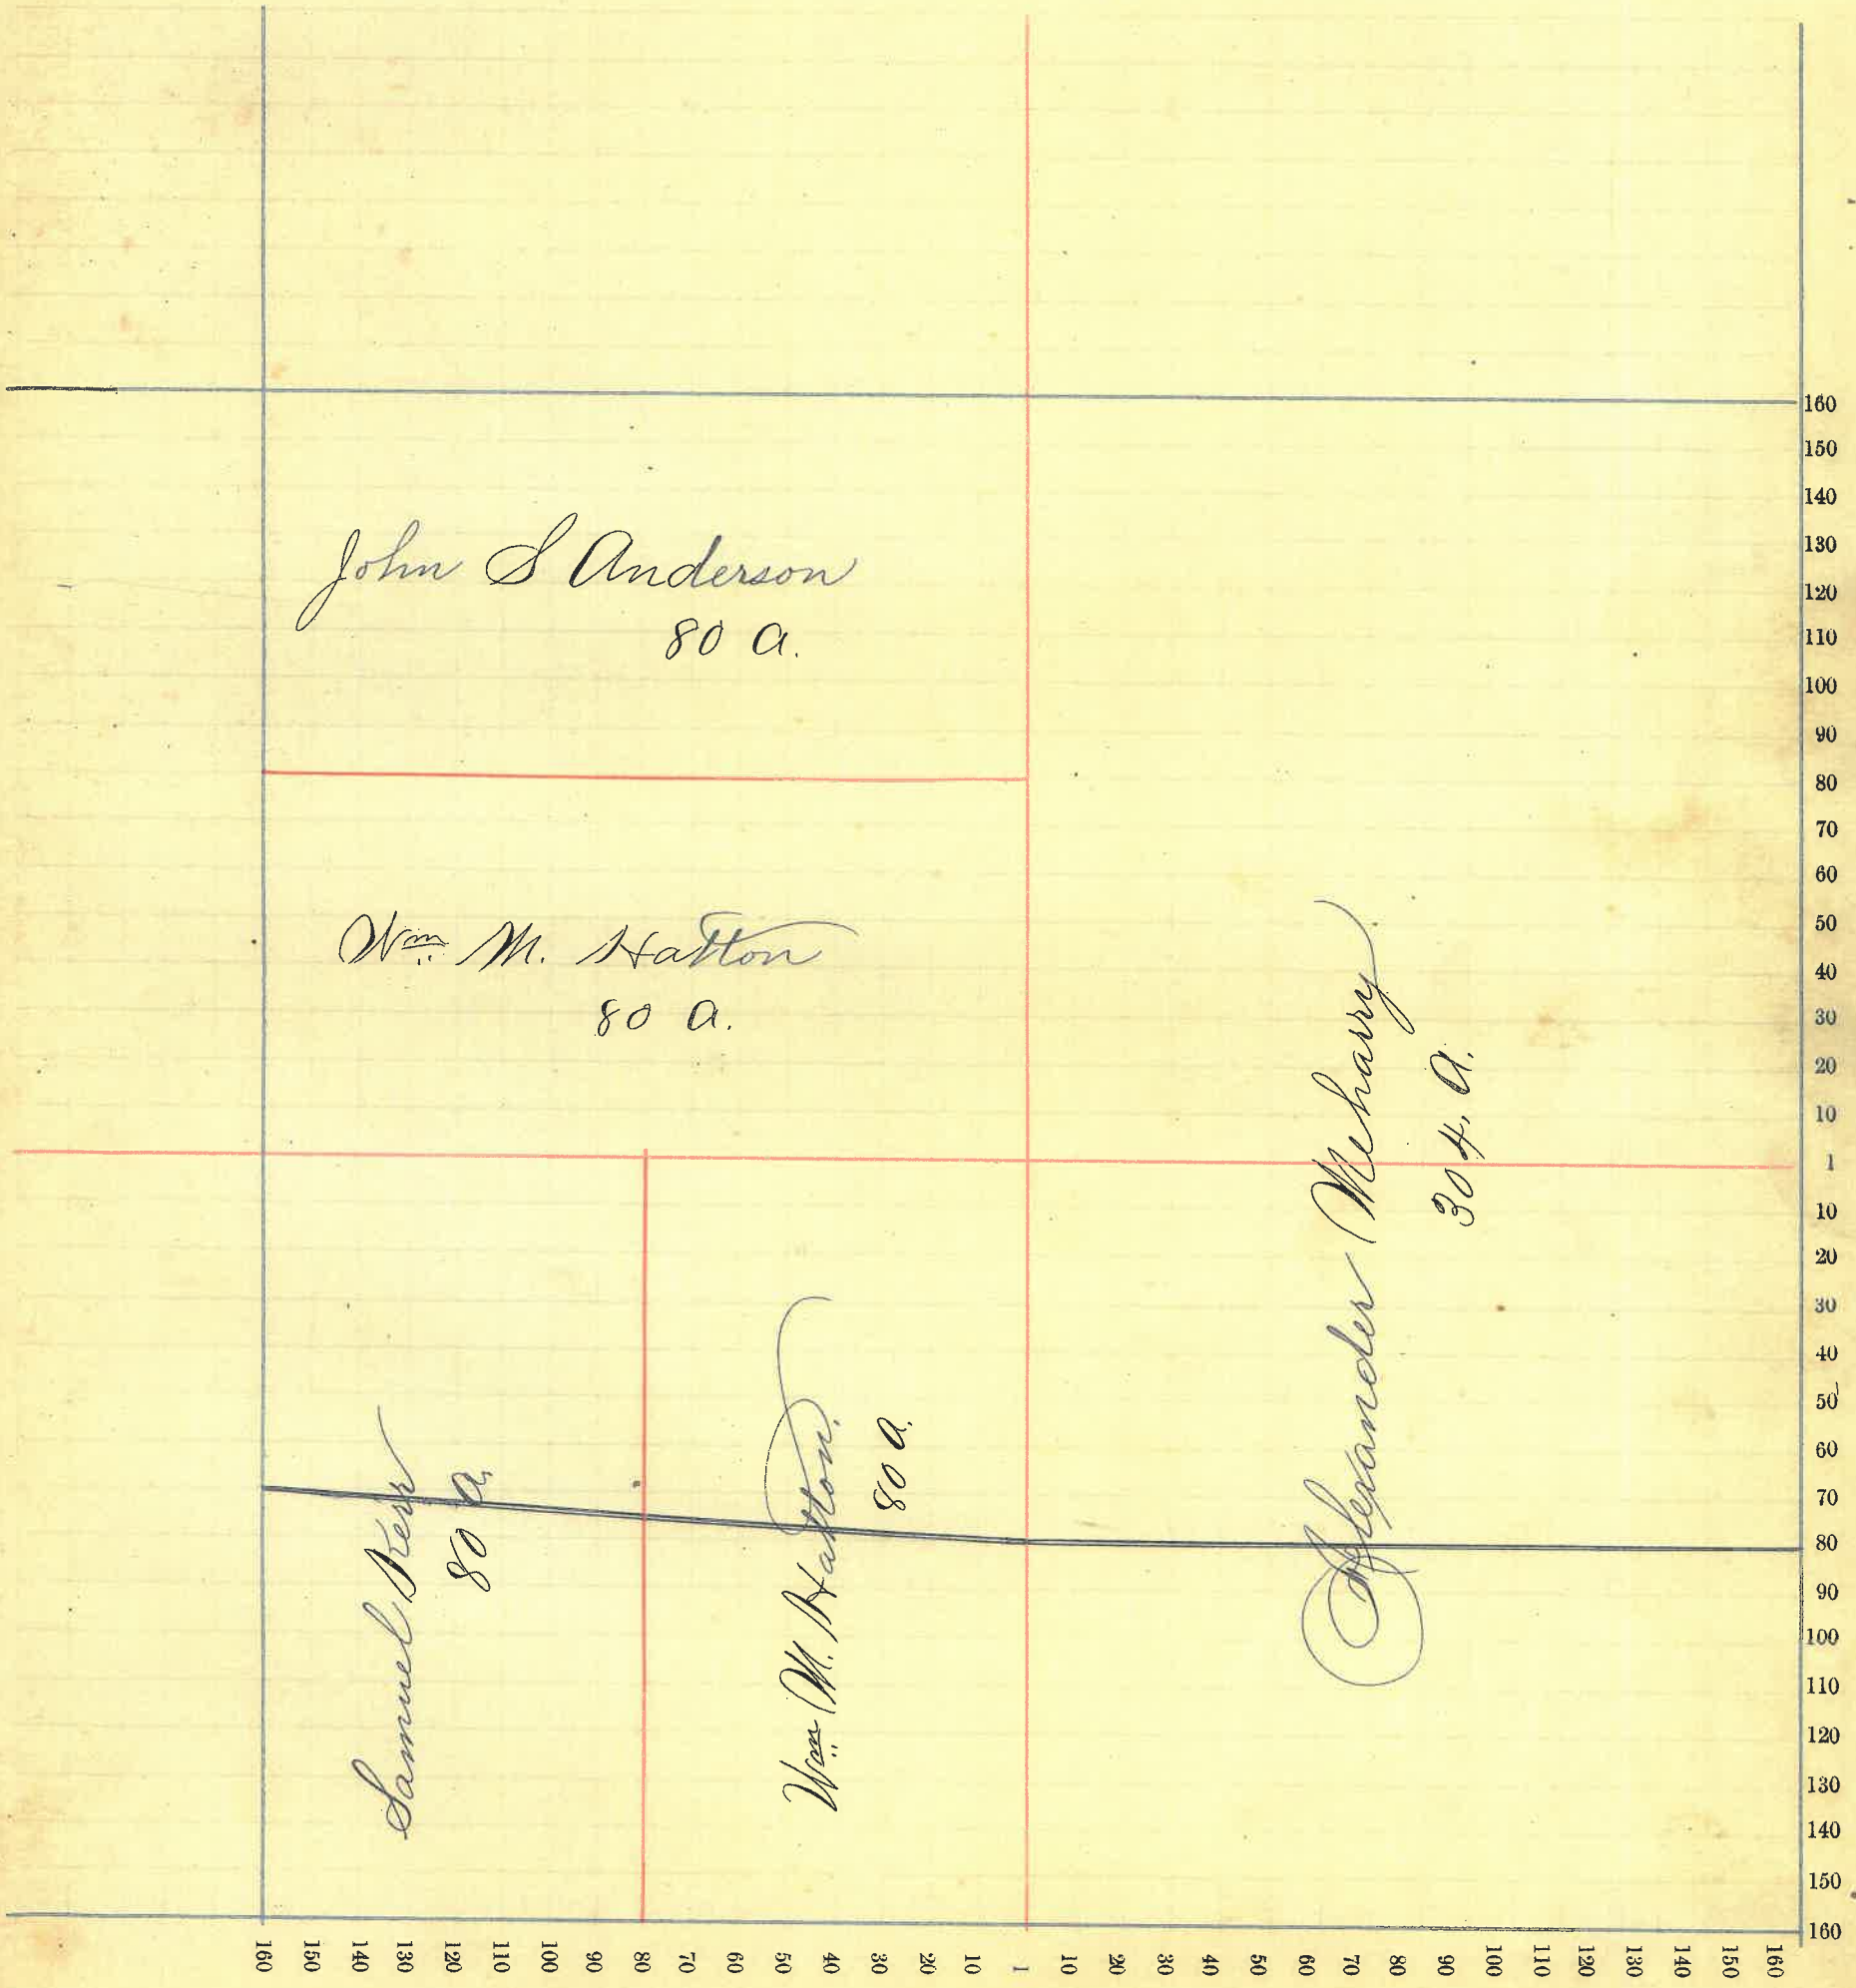 John S Anderson
80 a.
Wm M. Hatton
80 a.
Samuel Kerr
80 a.
Wm M. Hatton.
80 a.
Alexander Meharry
304. a.
160
150
140
130
120
110
100
90
80
70
60
50
40
30
20
10
1
10
20
30
40
50
60
70
80
90
100
110
120
130
140
150
160
160 150 140 130 120 110 100 90 80 70 60 50 40 30 20 10 1 10 20 30 40 50 60 70 80 90 100 110 120 130 140 150 160